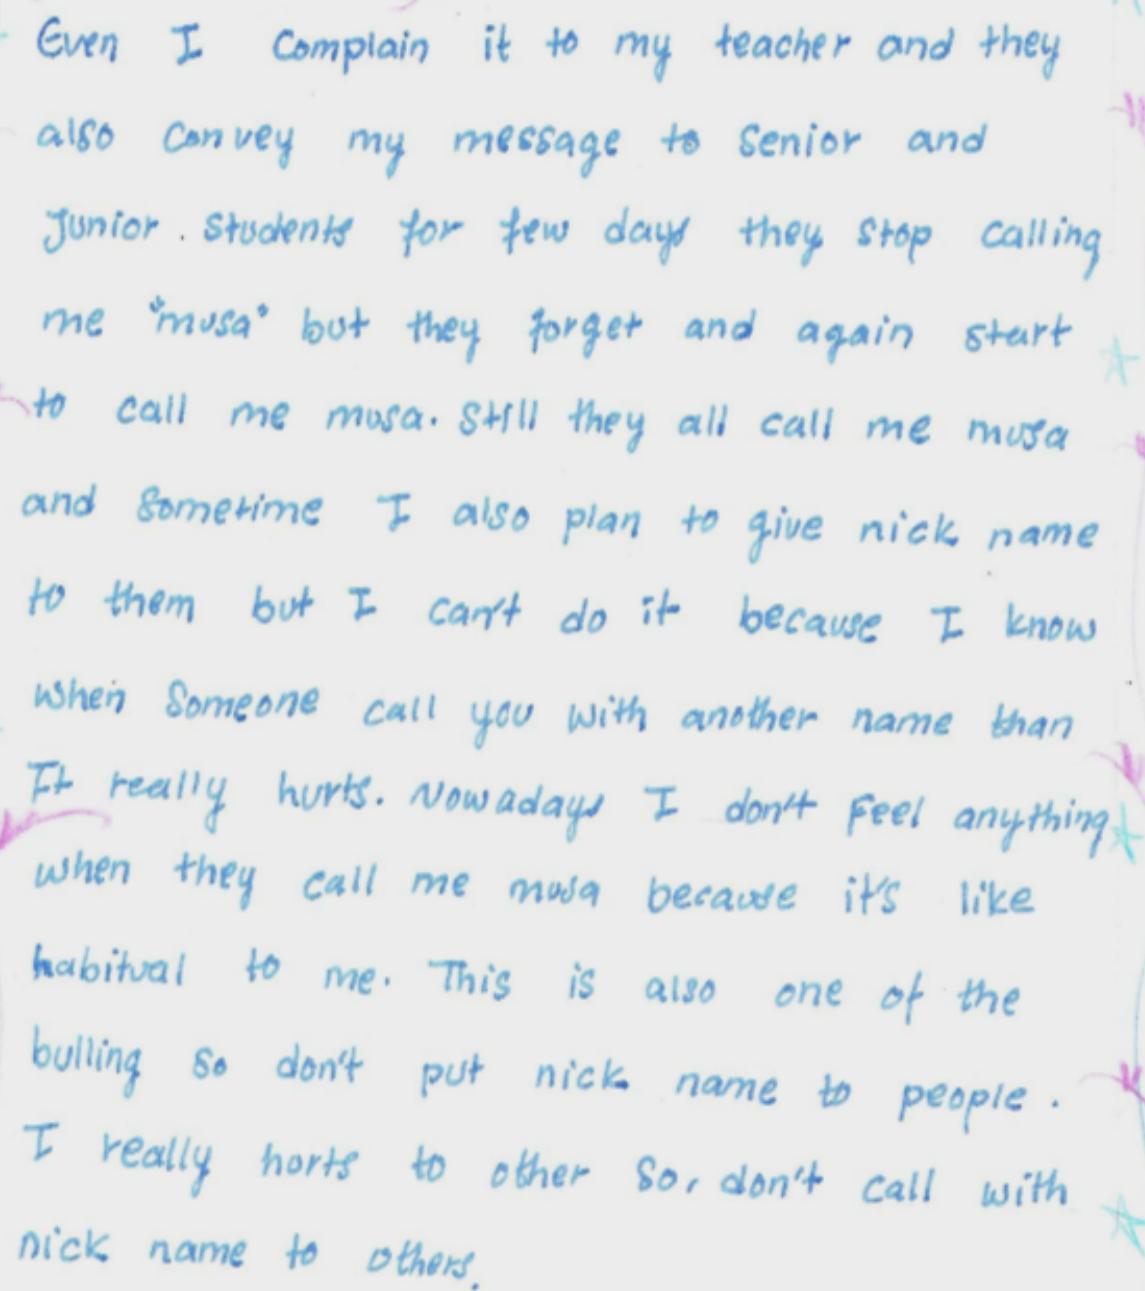 Even I Complain it to my teacher and they
also convey my message to senior and
Junior. Students for few days they stop calling
me "musa" but they forget and again start
to call me musa. Still they all call me musa
and sometime I also plan to give nick name
to them but I can't do it because I know
when someone call you with another name than
It really hurts. Nowadays I don't feel anything
when they call me musa because it's like
habitual to me. This is also one of the
bulling so don't put nick name to people.
I really horts to other so, don't call with
nick name to others.